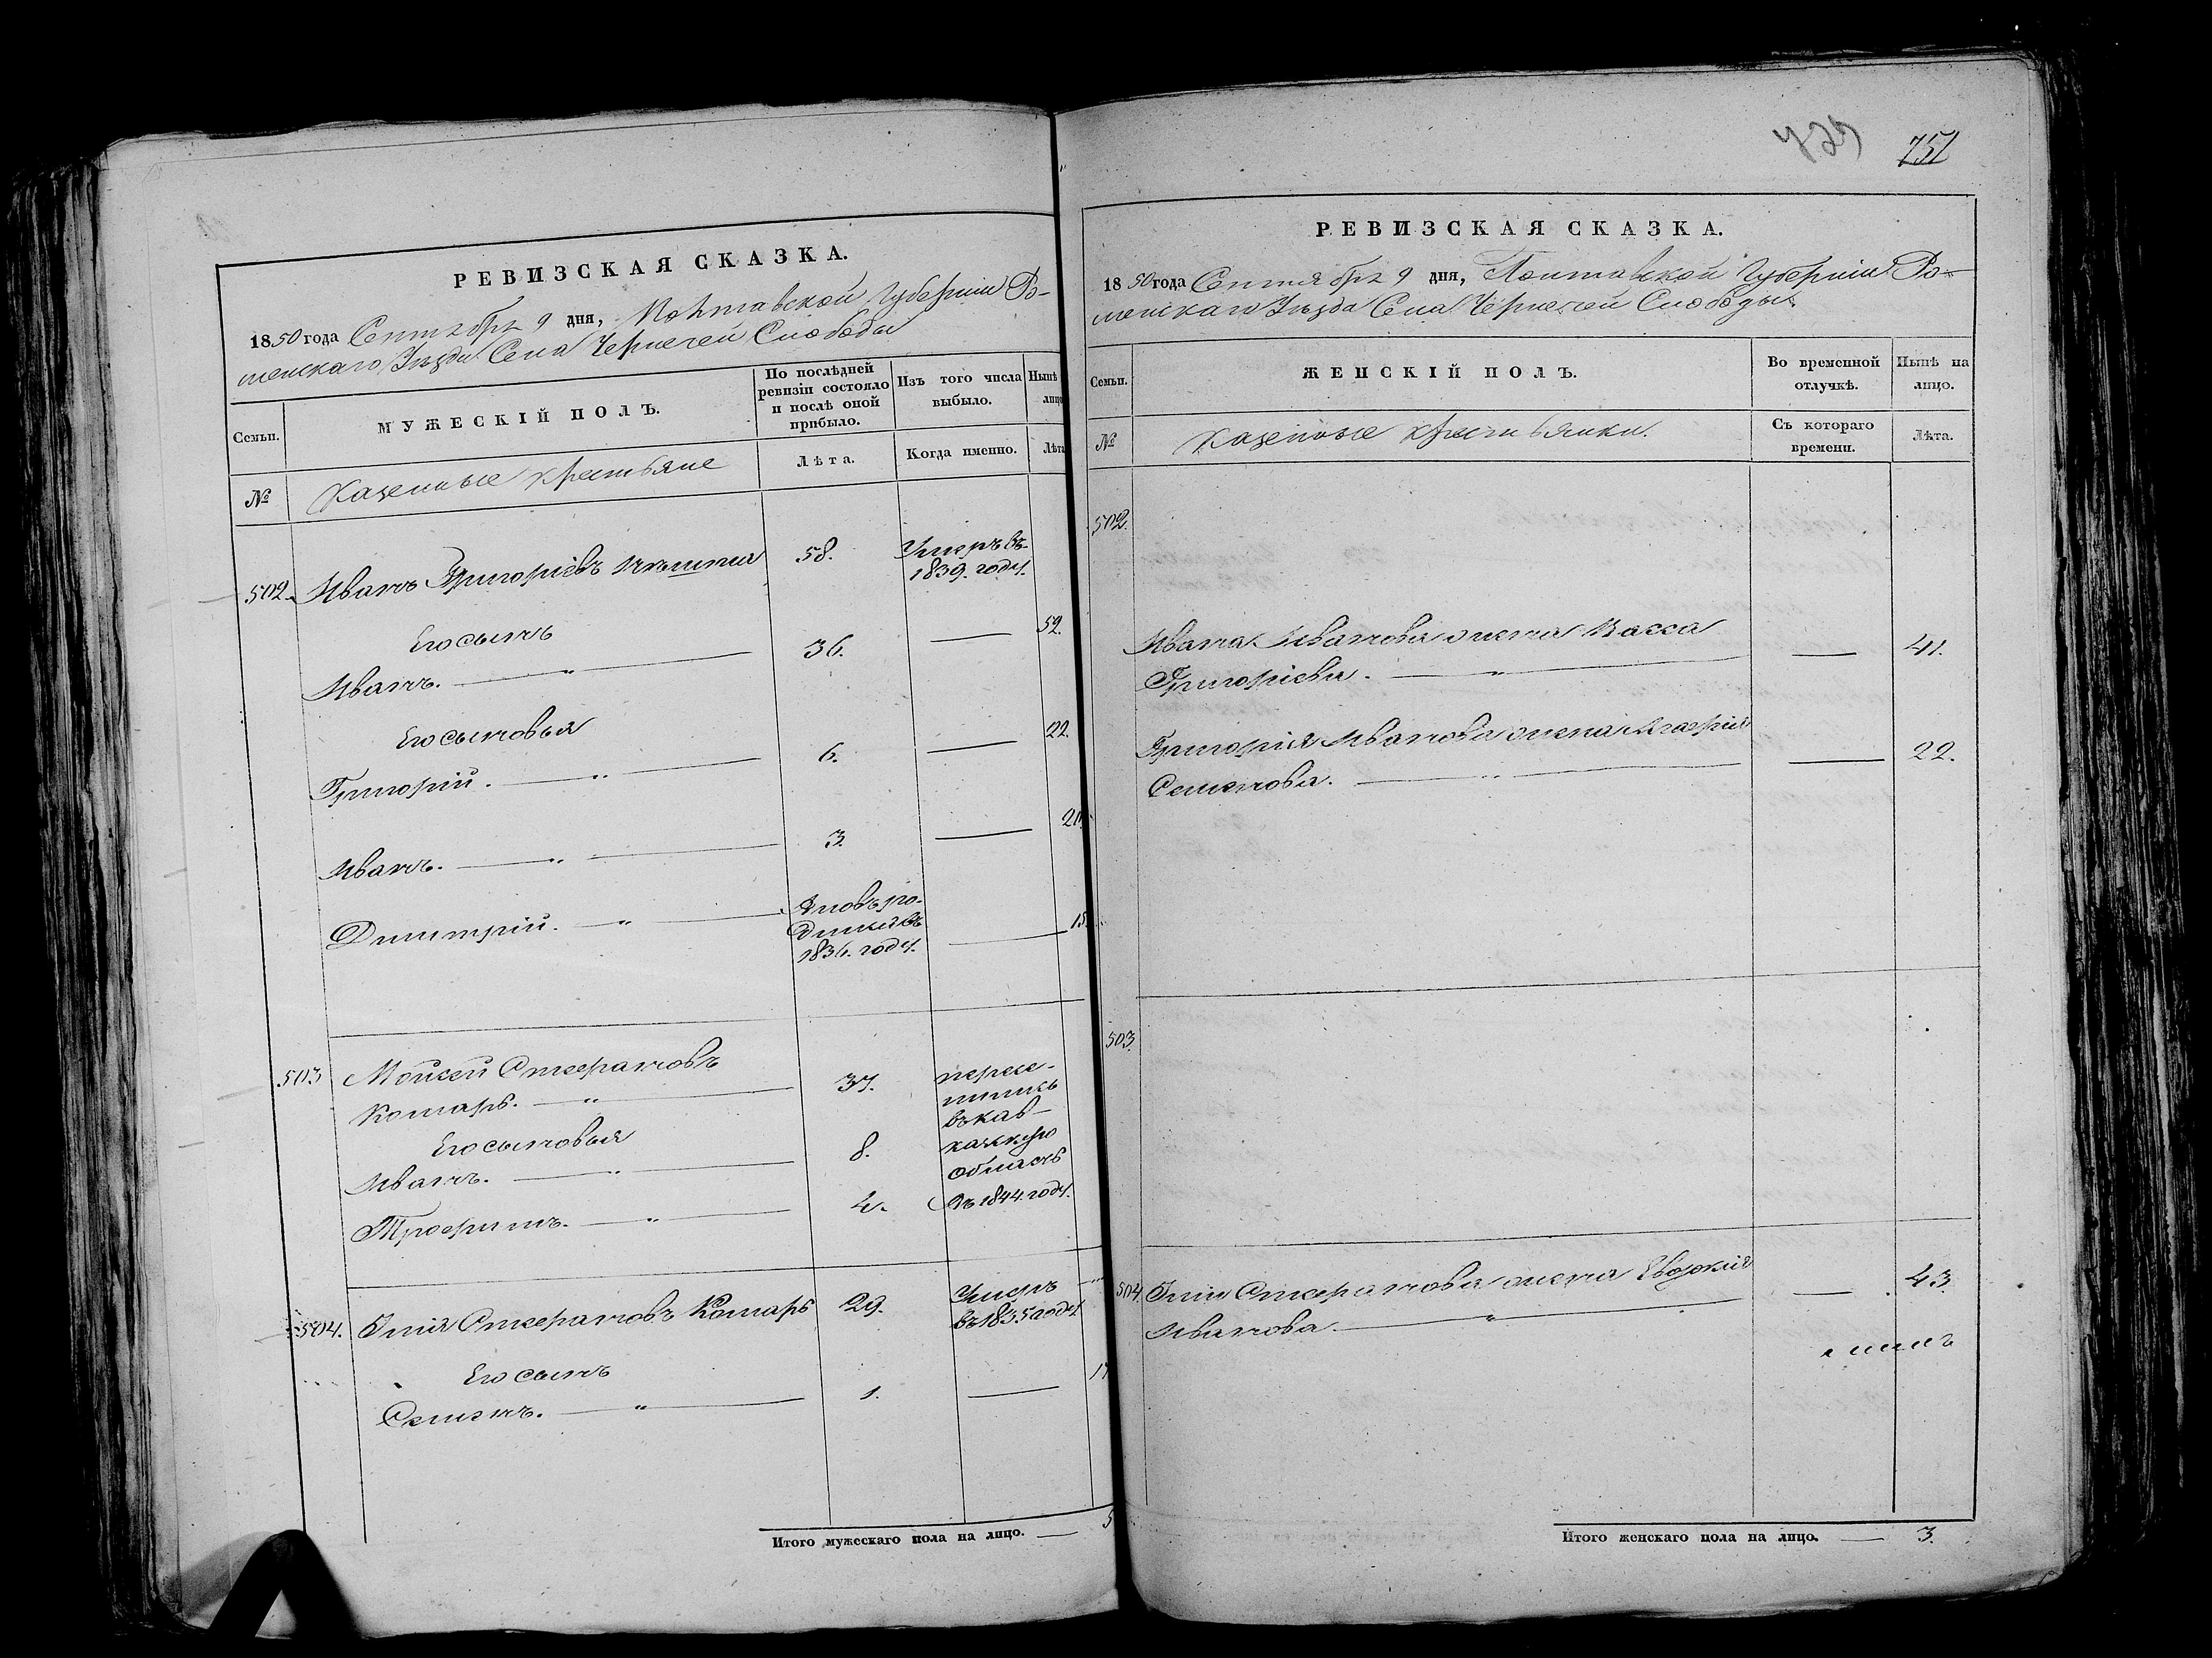 РЕВИЗСКАЯ СКАЗКА.
1850 года Сентября 9 дня, Полтавской Губерніи Ро-
менскаго Уѣзда Села Чернечей Слободы
Семьи.
МУЖЕСКІЙ ПОЛЪ.
По послѣдней
ревизіи состояло
и послѣ оной
прибыло.
Изъ того числа
выбыло.
Нынѣ
лицо
№
Казенные крестьяне
Лѣта.
Когда именно.
Лѣта
502. Иванъ Григоріевъ 58. Умеръ въ
1839. году.
Его сынъ
Иванъ. — „ — 36. — 52.
Его сыновья
Григорій. — „ — 6. — 22.
Иванъ. — „ — 3. — 20
Дмитрій. — „ — Вновь ро-
дился въ
1836. году. —
503 Мойсей Стефановъ
Комаръ. — „ — 37. пересе-
лились
въ кав-
казскую
область
въ 1844. году.
Его сыновья
Иванъ. — „ — 8.
Трофимъ. — „ — 4.
504. Илія Стефановъ Комаръ 29. Умеръ
въ 1835 году
Его сынъ
Семенъ. — „ — 1. — 17
Итого мужескаго пола на лицо. — 5
751
РЕВИЗСКАЯ СКАЗКА.
1850 года Сентября 9 дня, Полтавской Губерніи Ро-
менскаго Уѣзда Села Чернечей Слободы.
Семьи.
ЖЕНСКІЙ ПОЛЪ.
Во временной
отлучкѣ.
Нынѣ на
лицо.
№
Казенные крестьянки.
Съ котораго
времени.
Лѣта.
502.
Ивана Иванова жена Васса
Григоріева. — „ — — 41.
Григорія Иванова жена Агафія
Семенова. — „ — — 22.
503.
504. Иліи Стефанова жена Евдокія
Иванова — „ — — 43.
Итого женскаго пола на лицо. — 3.